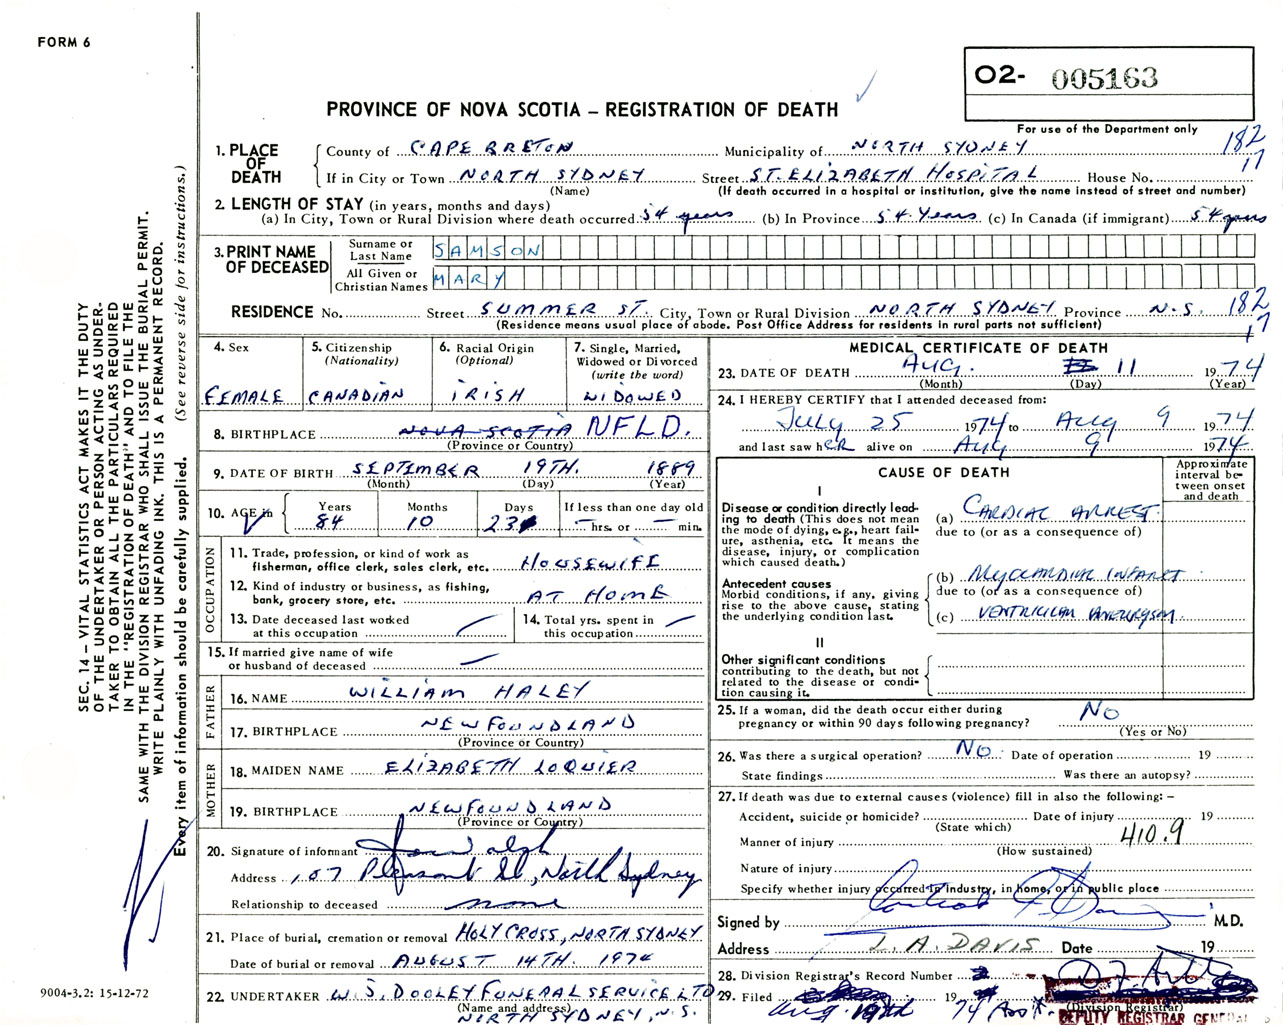 FORM 6
O2- 005163
PROVINCE OF NOVA SCOTIA – REGISTRATION OF DEATH
For use of the Department only
182
17
1. PLACE OF DEATH
County of CAPE BRETON Municipality of NORTH SYDNEY
If in City or Town NORTH SYDNEY Street ST. ELIZABETH HOSPITAL House No.
(Name) (If death occurred in a hospital or institution, give the name instead of street and number)
2. LENGTH OF STAY (in years, months and days)
(a) In City, Town or Rural Division where death occurred 54 years (b) In Province 54 Years (c) In Canada (if immigrant) 54 years
3. PRINT NAME OF DECEASED
Surname or Last Name SAMSON
All Given or Christian Names MARY
RESIDENCE No. Street SUMMER ST. City, Town or Rural Division NORTH SYDNEY Province N.S. 182
17
(Residence means usual place of abode. Post Office Address for residents in rural parts not sufficient)
4. Sex
FEMALE
5. Citizenship (Nationality)
CANADIAN
6. Racial Origin (Optional)
IRISH
7. Single, Married, Widowed or Divorced (write the word)
WIDOWED
8. BIRTHPLACE NOVA SCOTIA NFLD.
(Province or Country)
9. DATE OF BIRTH SEPTEMBER 19TH. 1889
(Month) (Day) (Year)
10. AGE in Years Months Days If less than one day old
84 10 23 – hrs. or – min.
OCCUPATION
11. Trade, profession, or kind of work as fisherman, office clerk, sales clerk, etc. HOUSEWIFE
12. Kind of industry or business, as fishing, bank, grocery store, etc. AT HOME
13. Date deceased last worked at this occupation
14. Total yrs. spent in this occupation
15. If married give name of wife or husband of deceased
FATHER
16. NAME WILLIAM HALEY
17. BIRTHPLACE NEWFOUNDLAND
(Province or Country)
MOTHER
18. MAIDEN NAME ELIZABETH LOQUIER
19. BIRTHPLACE NEWFOUNDLAND
(Province or Country)
20. Signature of informant
Address 107 Pleasant St, North Sydney
Relationship to deceased none
21. Place of burial, cremation or removal HOLY CROSS, NORTH SYDNEY
Date of burial or removal AUGUST 14TH. 1974
22. UNDERTAKER W. J. DOOLEY FUNERAL SERVICE LTD
(Name and address)
NORTH SYDNEY, N.S.
MEDICAL CERTIFICATE OF DEATH
23. DATE OF DEATH AUG. 11 1974
(Month) (Day) (Year)
24. I HEREBY CERTIFY that I attended deceased from:
July 25 1974 to Aug 9 1974
and last saw hER alive on Aug 9 1974
CAUSE OF DEATH
Approximate interval between onset and death
I
Disease or condition directly leading to death (This does not mean the mode of dying, e.g., heart failure, asthenia, etc. It means the disease, injury, or complication which caused death.)
(a) CARDIAC ARREST
due to (or as a consequence of)
Antecedent causes
Morbid conditions, if any, giving rise to the above cause, stating the underlying condition last.
(b) MYOCARDIAL INFARCT
due to (or as a consequence of)
(c) VENTRICULAR ANEURYSM
II
Other significant conditions
contributing to the death, but not related to the disease or condition causing it.
25. If a woman, did the death occur either during pregnancy or within 90 days following pregnancy? NO
(Yes or No)
26. Was there a surgical operation? NO Date of operation 19
State findings Was there an autopsy?
27. If death was due to external causes (violence) fill in also the following: –
Accident, suicide or homicide? Date of injury 19
(State which)
Manner of injury 410.9
(How sustained)
Nature of injury
Specify whether injury occurred in industry, in home, or in public place
Signed by M.D.
Address L. A. DAVIS Date 19
28. Division Registrar's Record Number
29. Filed Aug 1974
(Division Registrar)
DEPUTY REGISTRAR GENERAL
SEC. 14 – VITAL STATISTICS ACT MAKES IT THE DUTY
OF THE UNDERTAKER OR PERSON ACTING AS UNDER-
TAKER TO OBTAIN ALL THE PARTICULARS REQUIRED
IN THE "REGISTRATION OF DEATH" AND TO FILE THE
SAME WITH THE DIVISION REGISTRAR WHO SHALL ISSUE THE BURIAL PERMIT.
WRITE PLAINLY WITH UNFADING INK. THIS IS A PERMANENT RECORD.
Every item of information should be carefully supplied. (See reverse side for instructions.)
9004-3.2: 15-12-72